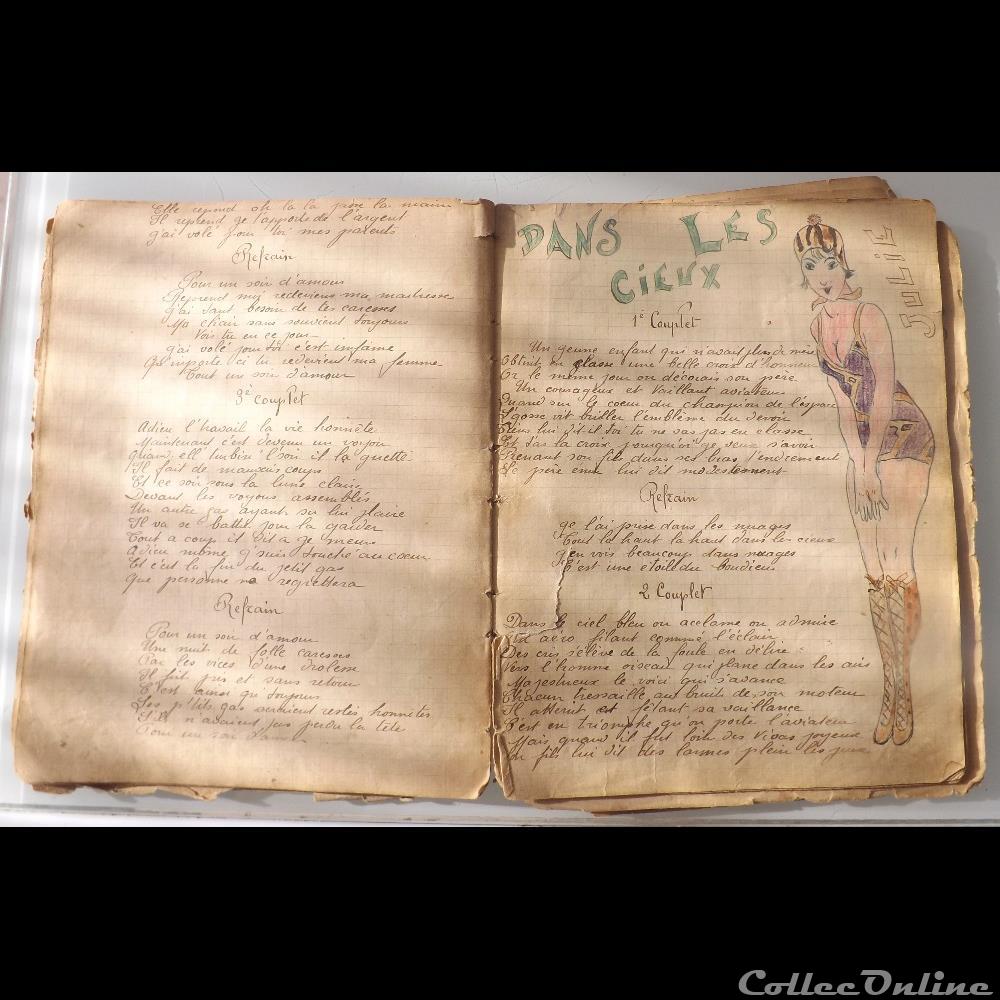 Elle repond oh la la pose la maine
Il reprend je t'apporte de l'argent
j'ai volé pour toi mes parents
Refrain
Pour un soir d'amour
Reprend moi redeviens ma maitresse
j'ai tant besoin de tes caresses
Ma chair sans souvient toujours
Vois tu en ce jour
j'ai volé pour toi c'est infame
Qu'importe si tu redeviens ma femme
Tout un soir d'amour
3e couplet
Adieu l'travail la vie honnête
Maintenant c'est devenu un voyou
quand ell' turbin' l'soir il la guette
Il fait de mauvais coups
Et ce soir sous la lune claire
Devant les voyous assemblés
Un autre gas ayant su lui plaire
Il va se battre pour la garder
Tout a coup il dit a je meurs
Adieu môme j'suis touché au coeur
Et c'est la fin du petit gas
Que personne ne regrettera
Refrain
Pour un soir d'amour
Une nuit de folle caresses
Par les vices d'une drolesse
Il fut pris et sans retour
C'est ainsi qu'toujours
Les p'tits gas seraient restés honnetes
S'ils n'avaient pas perdu la tête
Pour un soir d'amour
DANS LES
CIEUX
JULIE
1e Couplet
Un jeune enfant qui n'avait plus de mère
Obtint en classe une belle croix d'honneur
Or le même jour on décorais son père
Un courageux et vaillant aviateur
Quand sur le coeur du champion de l'espace
L'gosse vit briller l'emblème du devoir
Tiens lui dit-il toi tu ne vas pas en classe
Et t'as la croix pourquoi je veux s'avoir
Prenant son fils dans ses bras tendrement
Le père emu lui dit modestement
Refrain
Je l'ai prise dans les nuages
Tout là haut là haut dans les cieux
J'en vois beaucoup dans nuages
C'est une étoile du bondieu
2 Couplet
Dans le ciel bleu on acclame on admire
Un aéro filant comme l'éclair
Des cris s'élève de la foule en délire
Vers l'homme oiseau qui plane dans les airs
Majestueux le voici qui s'avance
Chacun tressaille au bruit de son moteur
Il atterrit et fêtant sa vaillance
C'est en triomphe qu'on porte l'aviateur
Mais quand il fut loin des vivas joyeux
Son fils lui dit des larmes plein les yeux
CollecOnline